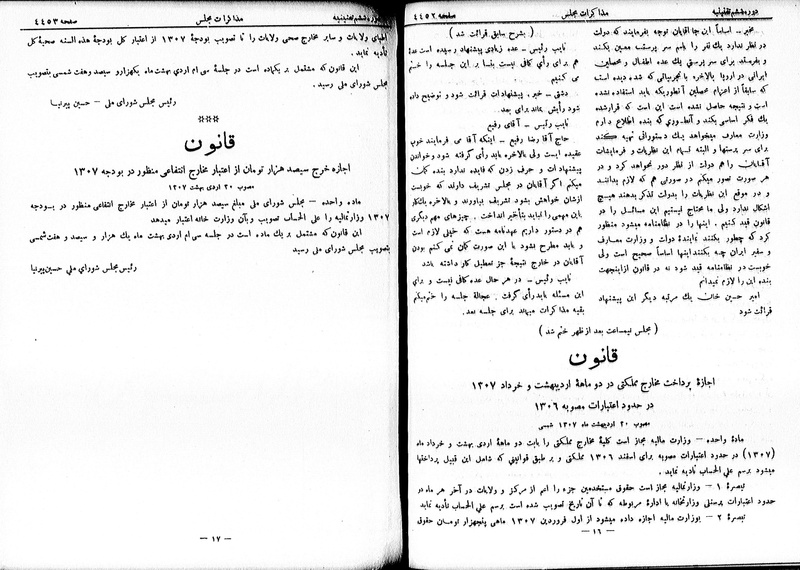 دوره ششم تقنینیه
مذاکرات مجلس
صفحه ۴۴۵۲
مخبر - اساساً این جا آقایان توجه بفرمایند که دولت
در نظر ندارد یک نفر را باسم سر پرست معین بکند
و بفرستد برای سر پرستی یک عده اطفال و محصلین
ایرانی در اروپا بالاخره با تجربیاتی که شده دیده است
که سابقاً از اعزام محصلین آنطوریکه باید استفاده نشده
است و نتیجه حاصل نشده است این است که قرار شده
یک فکر اساسی بکند و آنطوری که بنده اطلاع دارم
وزارت معارف میخواهد یک دستوراتی تهیه بکند
برای سر پرستها و البته تمام این نظریات و فرمایشات
آقایان را هم دولت از نظر دور نخواهد کرد و در
هر صورت تصور میکنم در صورتی هم که لازم بدانند
و در موقع این نظریات را بدولت تذکر بدهند هیچ
اشکال ندارد ولی ما محتاج نیستیم این مسائل را در
قانون قید کنیم . اینها را در نظامنامه میشود منظور
کرد که چطور بکنند نماینده دولت و وزارت معارف
و سفیر ایران چه بکنند اینها اساساً صحیح است ولی
خوبست در نظامنامه قید شود نه در قانون از اینجهت
بنده این را لازم نمیدانم
امیر حسین خان - یک مرتبه دیگر این پیشنهاد
قرائت شود
( بشرح سابق قرائت شد )
نایب رئیس - عده زیادی پیشنهاد رسیده است عدهٔ
هم برای رأی کافی نیست بنا بر این جلسه را ختم
می کنیم
دشتی - خیر . پیشنهادات قرائت شود و توضیح داده
شود رأیش بماند برای بعد .
نایب رئیس - آقای رفیع
حاج آقا رضا رفیع - اینکه آقا می فرمایند خوب
عقیده ایست ولی بالاخره باید رأی گرفته شود و خواندن
پیشنهادات و حرف زدن که فایده ندارد بنده گمان
میکنم اگر آقایان در مجلس تشریف دارند که خوبست
ازشان خواهش بشود تشریف بیاورند و بالاخره یک کار
باین مهمی را نباید بتأخیر انداخت . چیزهای مهم دیگری
هم در دستور داریم عهدنامه هست که خیلی لازم است
و باید مطرح بشود با این صورت گمان نمی کنم بودن
آقایان در خارج نتیجهٔ جز تعطیل کار داشته باشد
نایب رئیس - در هر حال عده کافی نیست و برای
این مسئله باید رأی گرفت . عجالة جلسه را ختم میکنم
بقیه مذاکرات میماند برای جلسه بعد .
( مجلس نیمساعت بعد از ظهر ختم شد )
قانون
اجازهٔ پرداخت مخارج مملکتی در دو ماههٔ اردیبهشت و خرداد ۱۳۰۷
در حدود اعتبارات مصوبه ۱۳۰۶
مصوب ۲۰ اردیبهشت ماه ۱۳۰۷ شمسی
مادهٔ واحده - وزارت مالیه مجاز است کلیهٔ مخارج مملکتی را بابت دو ماههٔ اردی بهشت و خرداد ماه
(۱۳۰۷) در حدود اعتبارات مصوبه برای اسفند ۱۳۰۶ مملکتی و بر طبق قوانینی که شامل این قبیل پرداختها
میشود برسم علی الحساب تادیه نماید .
تبصرهٔ ۱ - وزارتمالیه مجاز است حقوق مستخدمین جزء را اعم از مرکز و ولایات در آخر هر ماه در
حدود اعتبارات پرسنلی وزارتخانه یا ادارهٔ مربوطه که تا آن تاریخ تصویب شده است برسم علی الحساب تأدیه نماید
تبصرهٔ ۲ - بوزارت مالیه اجازه داده میشود از اول فروردین ۱۳۰۷ ماهی پنجهزار تومان حقوق
- ۱۶ -
دوره ششم تقنینیه
مذاکرات مجلس
صفحه ۴۴۵۳
اطبای ولایات و سایر مخارج صحی ولایات را تا تصویب بودجهٔ ۱۳۰۷ از اعتبار کل بودجهٔ هذه السنه صحیهٔ کل
تأدیه نماید .
این قانون که مشتمل بر یکماده است در جلسهٔ سی ام اردی بهشت ماه یکهزارو سیصد و هفت شمسی بتصویب
مجلس شورای ملی رسید .
رئیس مجلس شورای ملی - حسین پیرنیا
***
قانون
اجازه خرج سیصد هزار تومان از اعتبار مخارج انتفاعی منظور در بودجه ۱۳۰۷
مصوب ۳۰ اردی بهشت ۱۳۰۷
ماده واحده - مجلس شورای ملی مبلغ سیصد هزار تومان از اعتبار مخارج انتفاعی منظور در بودجه
۱۳۰۷ وزارتمالیه را علی الحساب تصویب و بآن وزارت خانه اعتبار میدهد
این قانون که مشتمل بر یک ماده است در جلسه سی ام اردی بهشت ماه یک هزار و سیصد و هفت شمسی
بتصویب مجلس شورای ملی رسید
رئیس مجلس شورای ملی حسین پیرنیا
- ۱۷ -